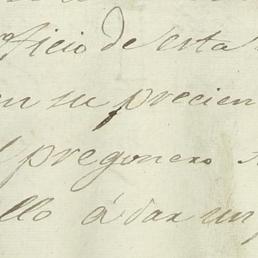 oficio de esta
en su precien
pregonero
ello á dar un